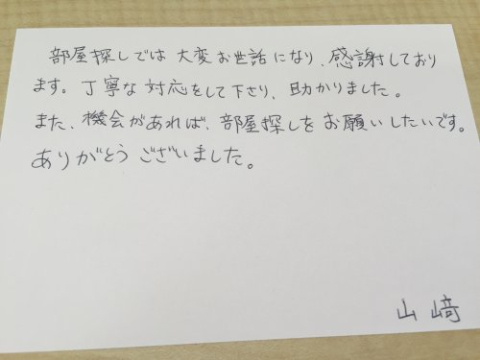 部屋探しでは大変お世話になり、感謝しており
ます。丁寧な対応をして下さり、助かりました。
また、機会があれば、部屋探しをお願いしたいです。
ありがとうございました。
山﨑